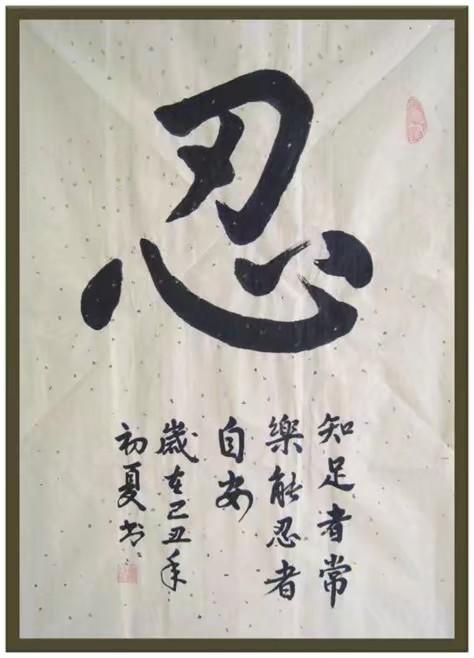 忍
知足者常
樂能忍者
自安
歲在己丑年
初夏书